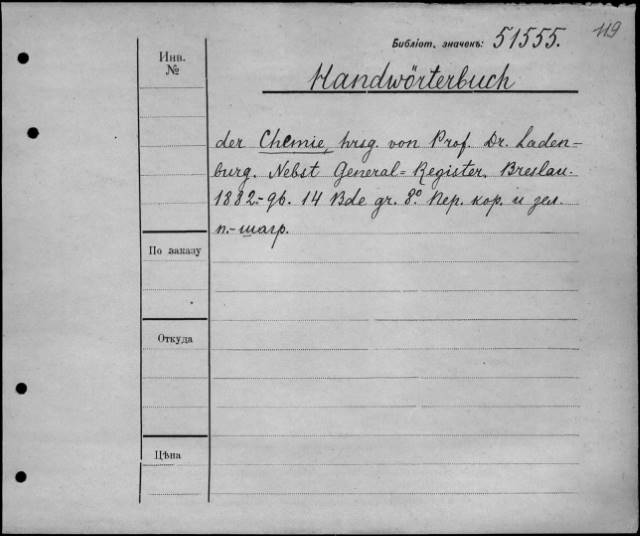 119
Библіот. значекъ: 51555.
Инв.
№
Handwörterbuch
der Chemie, hrsg. von Prof. Dr. Laden-
burg. Nebst General-Register. Breslau.
1882-96. 14 Bde gr. 8° Пер. кор. и зел.
п.-шагр.
По заказу
Откуда
Цѣна